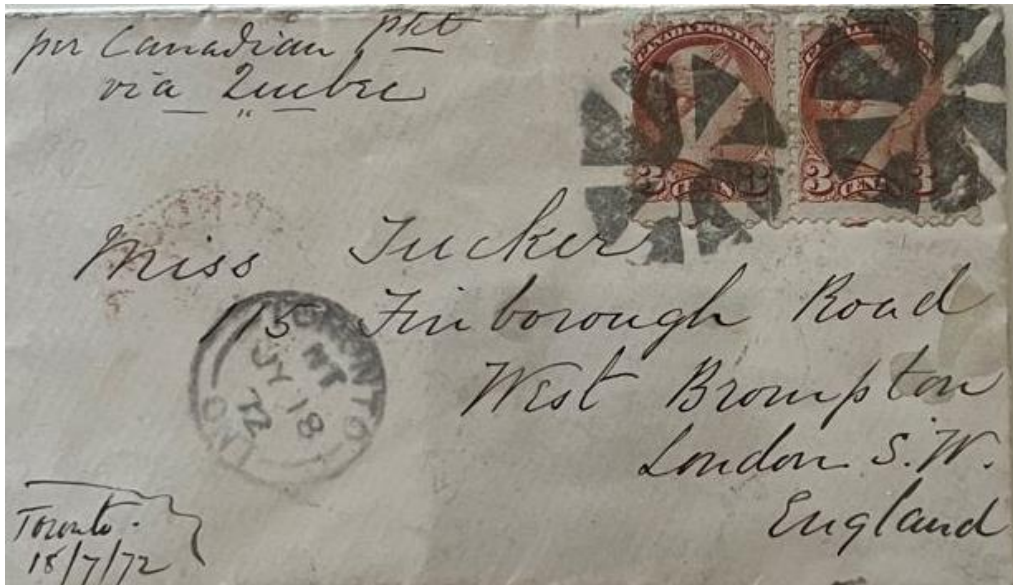 per Canadian pkt
via Quebec
CANADA POSTAGE
3 CENTS 3
3 CENTS 3
Miss Tucker
115 Finborough Road
West Brompton
London S.W.
England
TORONTO
NT
JY 18
72
ONT
Toronto.
18/7/72